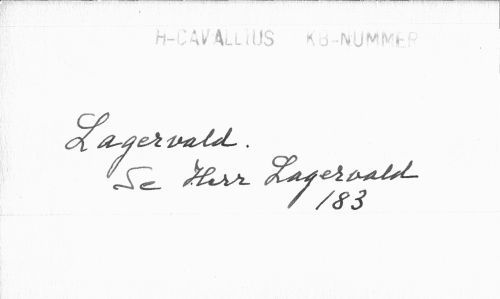 H-CAVALLIUS KB-NUMMER
Lagervald.
Se Herr Lagervald
183